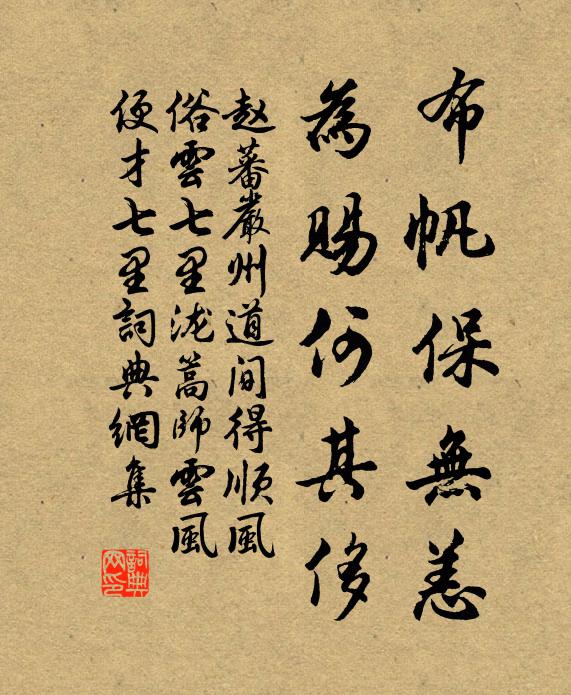 布帆保無恙
為賜何其侈
赵蕃嚴州道间得順風
俗雲七里泷篙師雲風
便才七里詞典網集
詞典网印